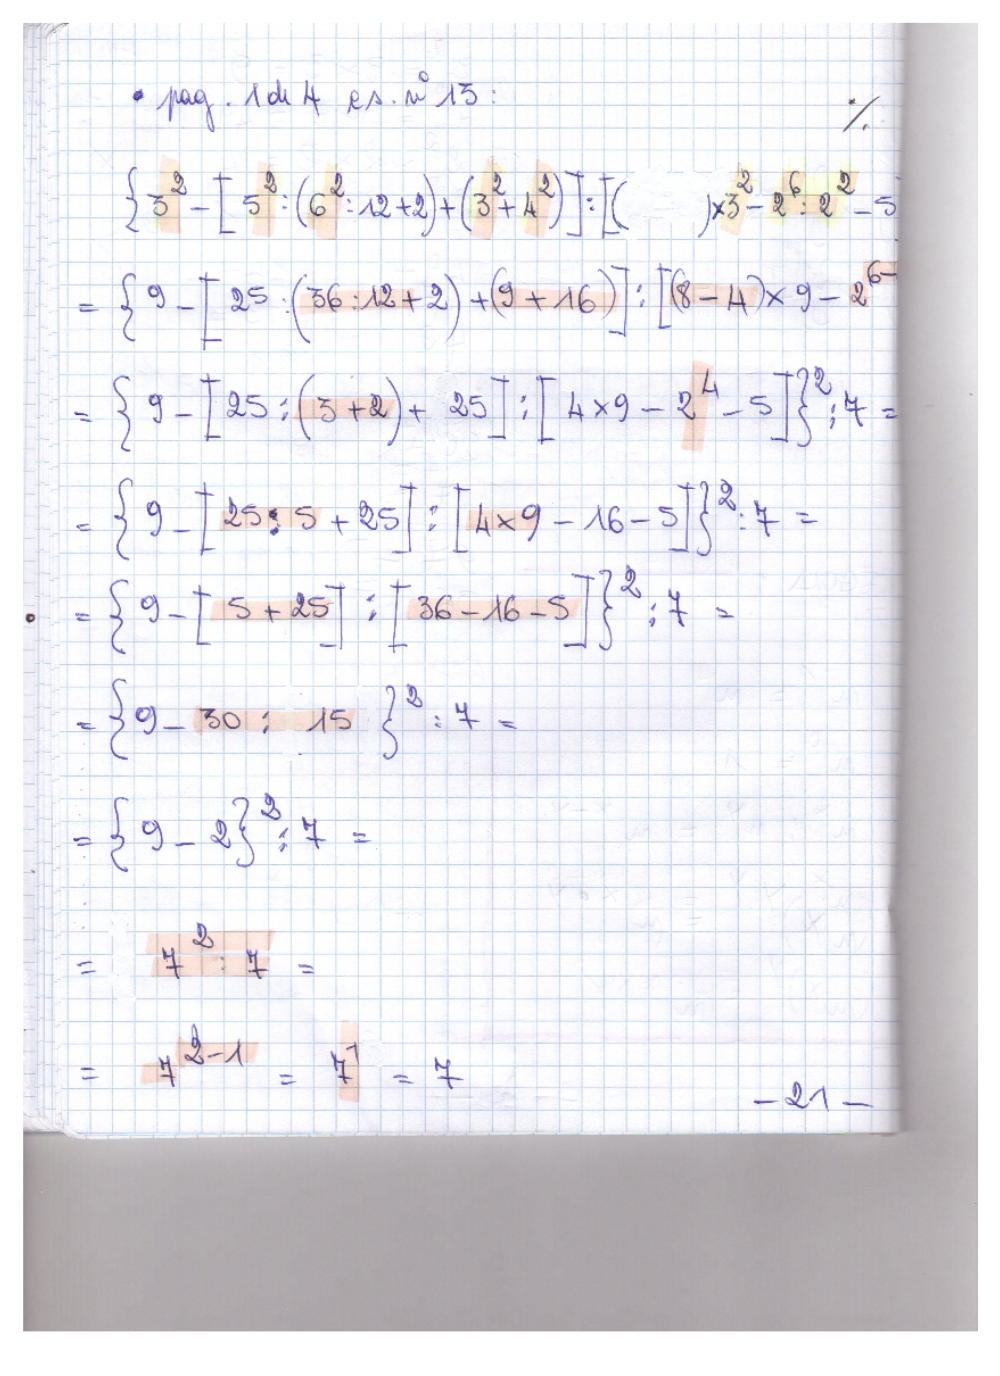 • pag. 1 di 4 es. n° 13:
%
{3² - [5² : (6² : 12 + 2) + (3² + 4²)] : [( ) × 3² - 2⁶ : 2² - 5
= {9 - [25 : (36 : 12 + 2) + (9 + 16)] : [(8 - 4) × 9 - 2⁶⁻
= {9 - [25 : (3 + 2) + 25] : [4 × 9 - 2⁴ - 5]}² : 7 =
= {9 - [25 : 5 + 25] : [4 × 9 - 16 - 5]}² : 7 =
= {9 - [5 + 25] : [36 - 16 - 5]}² : 7 =
= {9 - 30 : 15}² : 7 =
= {9 - 2}² : 7 =
= 7² : 7 =
= 7²⁻¹ = 7¹ = 7
- 21 -